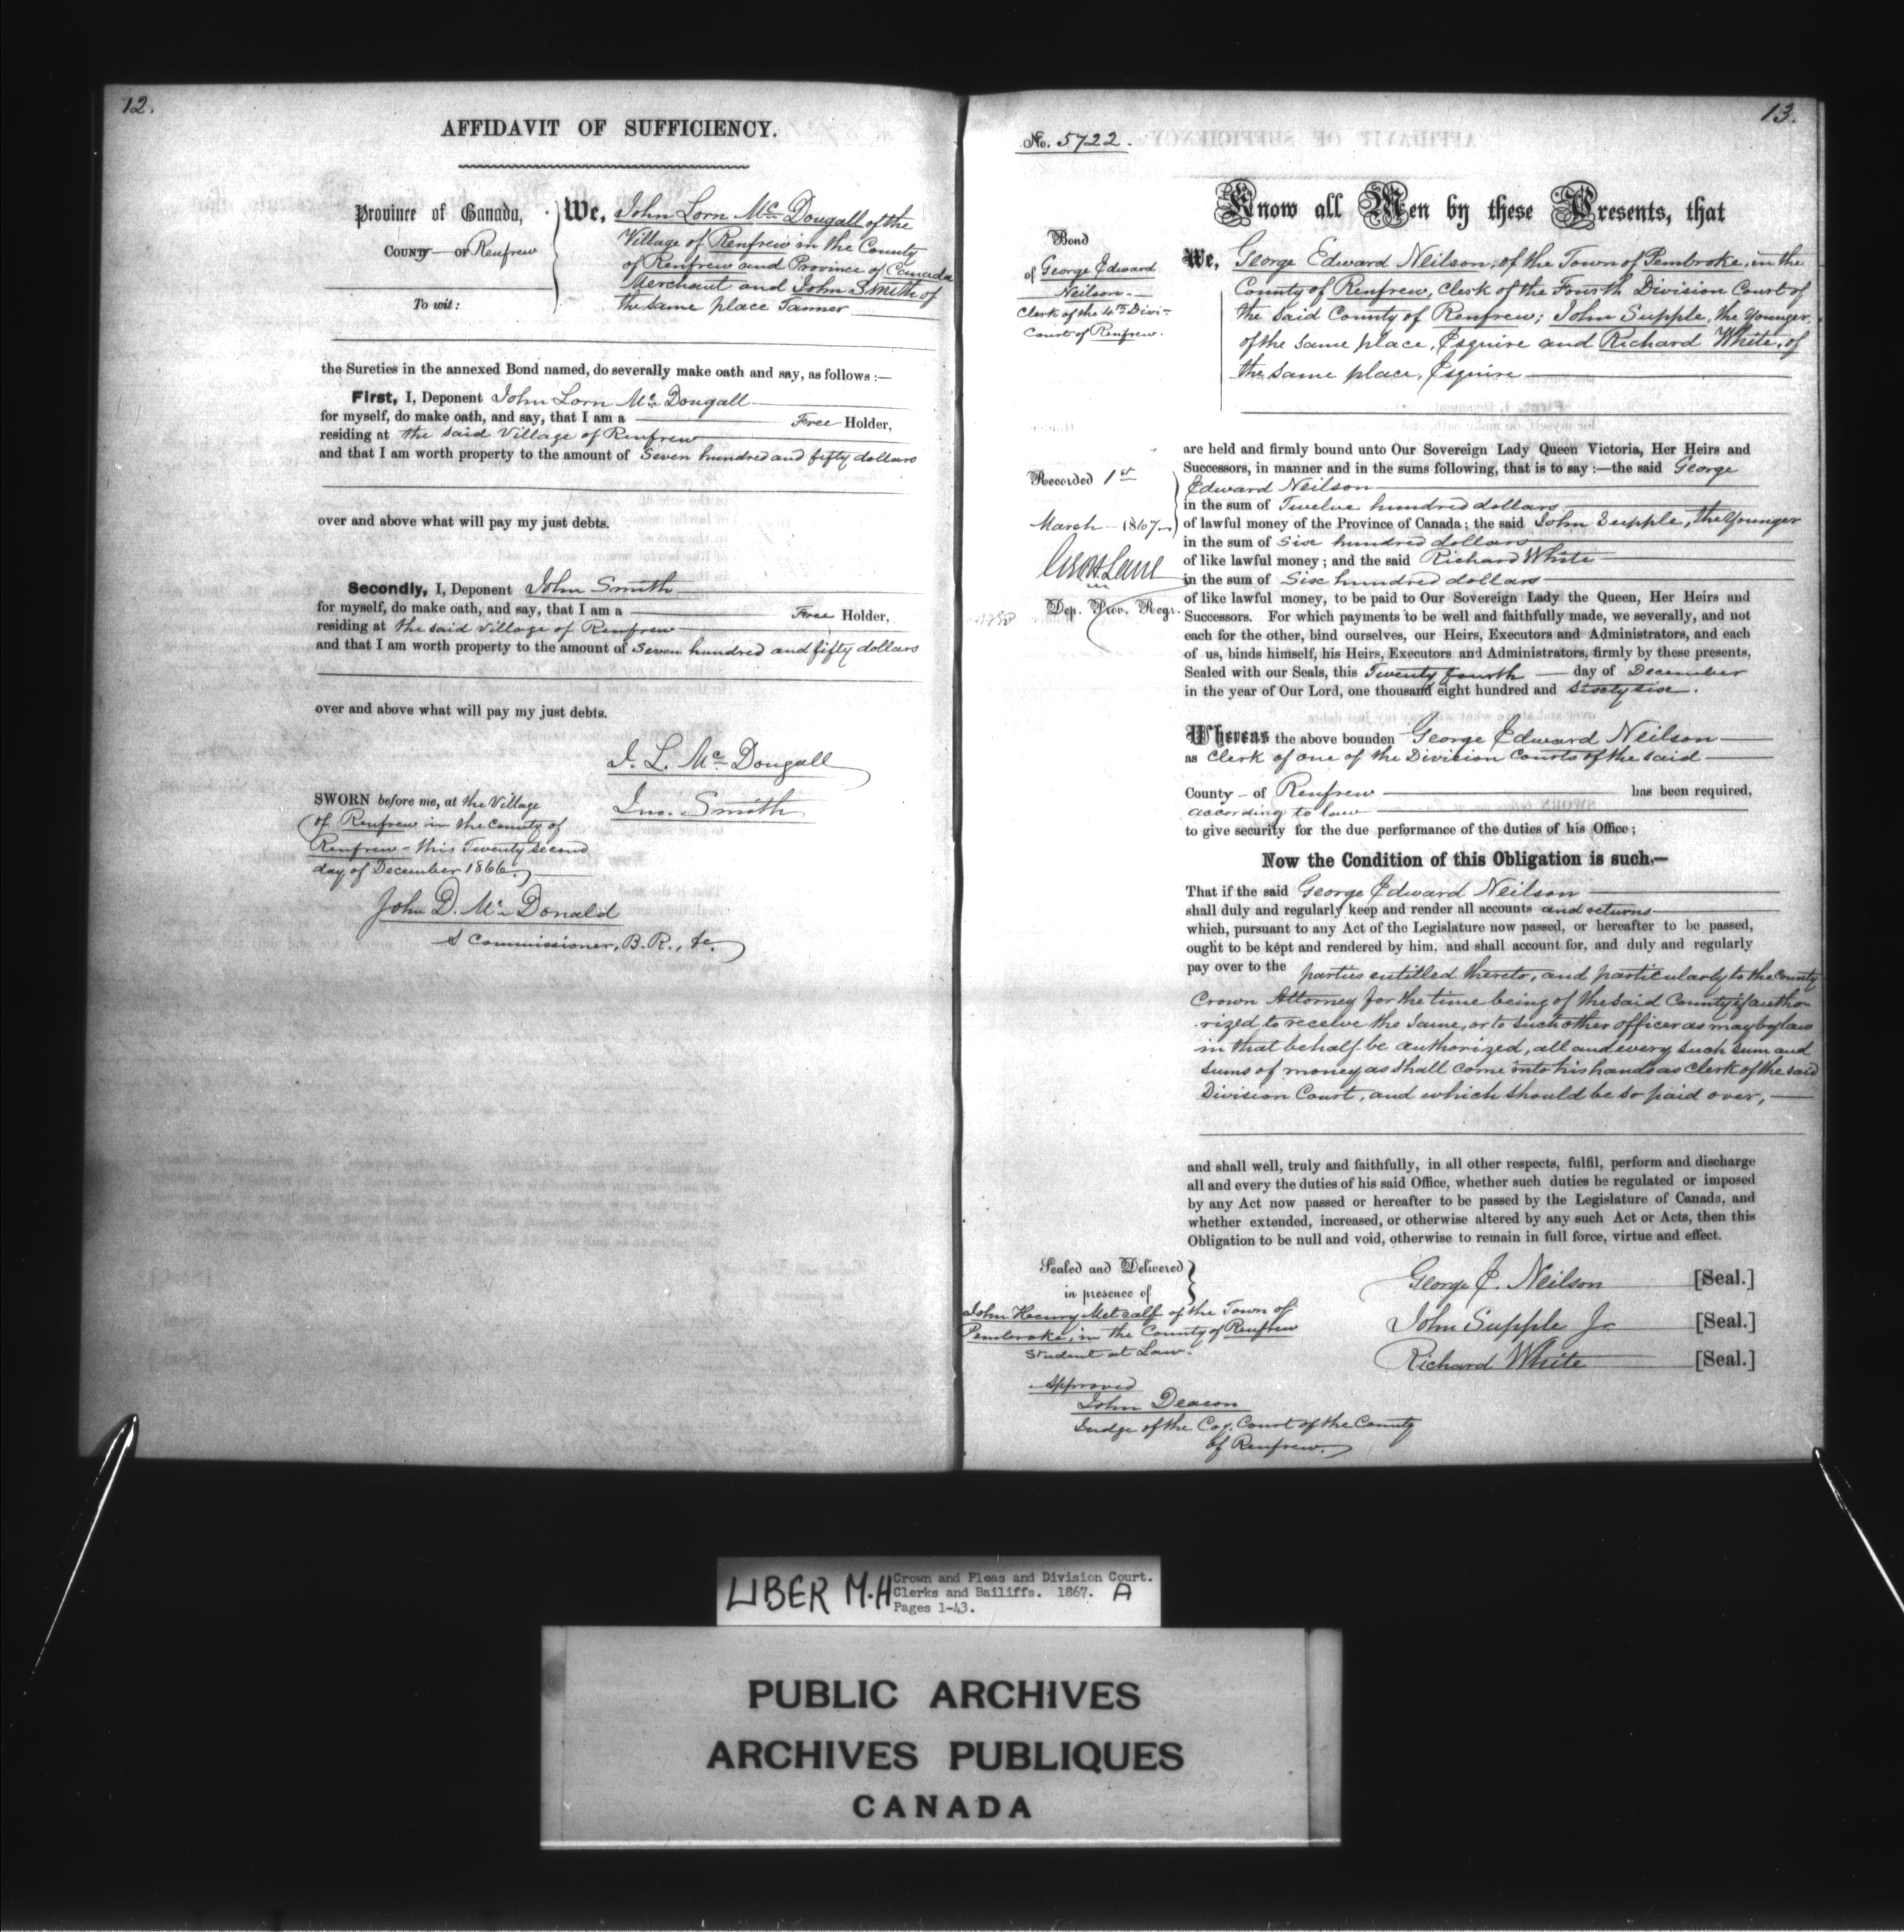 12.
AFFIDAVIT OF SUFFICIENCY.
Province of Canada,
COUNTY OF Renfrew
To wit:
We, John Lorn McDougall of the
Village of Renfrew in the County
of Renfrew and Province of Canada
Merchant and John Smith of
the same place Tanner
the Sureties in the annexed Bond named, do severally make oath and say, as follows:—
First, I, Deponent John Lorn McDougall
for myself, do make oath, and say, that I am a Free Holder,
residing at the said Village of Renfrew
and that I am worth property to the amount of Seven hundred and fifty dollars
over and above what will pay my just debts.
Secondly, I, Deponent John Smith
for myself, do make oath, and say, that I am a Free Holder,
residing at the said Village of Renfrew
and that I am worth property to the amount of Seven hundred and fifty dollars
over and above what will pay my just debts.
J. L. McDougall
Jno. Smith
SWORN before me, at the Village
of Renfrew in the County of
Renfrew - this Twenty second
day of December 1866.
John D. McDonald
A Commissioner, B.R., &c.
13.
No. 5722.
Know all Men by these Presents, that
Bond
of George Edward
Neilson
Clerk of the 4th Divi-
Court of Renfrew.
We, George Edward Neilson, of the Town of Pembroke, in the
County of Renfrew, Clerk of the Fourth Division Court of
the said County of Renfrew; John Supple, the Younger,
of the same place, Esquire and Richard White, of
the same place, Esquire
are held and firmly bound unto Our Sovereign Lady Queen Victoria, Her Heirs and
Successors, in manner and in the sums following, that is to say:—the said George
Edward Neilson
in the sum of Twelve hundred dollars
of lawful money of the Province of Canada; the said John Supple, the Younger
in the sum of Six hundred dollars
of like lawful money; and the said Richard White
in the sum of Six hundred dollars
of like lawful money, to be paid to Our Sovereign Lady the Queen, Her Heirs and
Successors. For which payments to be well and faithfully made, we severally, and not
each for the other, bind ourselves, our Heirs, Executors and Administrators, and each
of us, binds himself, his Heirs, Executors and Administrators, firmly by these presents,
Sealed with our Seals, this Twenty fourth day of December
in the year of Our Lord, one thousand eight hundred and Sixty six.
Recorded 1st
March 1867
Dep. Prov. Regr.
Whereas the above bounden George Edward Neilson
as Clerk of one of the Division Courts of the said
County of Renfrew has been required,
according to law
to give security for the due performance of the duties of his Office;
Now the Condition of this Obligation is such,—
That if the said George Edward Neilson
shall duly and regularly keep and render all accounts and returns
which, pursuant to any Act of the Legislature now passed, or hereafter to be passed,
ought to be kept and rendered by him, and shall account for, and duly and regularly
pay over to the parties entitled thereto, and particularly to the County
Crown Attorney for the time being of the said County if autho-
rized to receive the same, or to such other officer as may by law
in that behalf be authorized, all and every such sum and
sums of money as shall come into his hands as Clerk of the said
Division Court, and which should be so paid over,
and shall well, truly and faithfully, in all other respects, fulfil, perform and discharge
all and every the duties of his said Office, whether such duties be regulated or imposed
by any Act now passed or hereafter to be passed by the Legislature of Canada, and
whether extended, increased, or otherwise altered by any such Act or Acts, then this
Obligation to be null and void, otherwise to remain in full force, virtue and effect.
Sealed and Delivered
in presence of
John Henry Metcalf of the Town of
Pembroke, in the County of Renfrew
Student at Law.
George E. Neilson [Seal.]
John Supple Jr [Seal.]
Richard White [Seal.]
Approved
John Deacon
Judge of the Co. Court of the County
of Renfrew.
LIBER M.H
Crown and Pleas and Division Court.
Clerks and Bailiffs. 1867. A
Pages 1-43.
PUBLIC ARCHIVES
ARCHIVES PUBLIQUES
CANADA